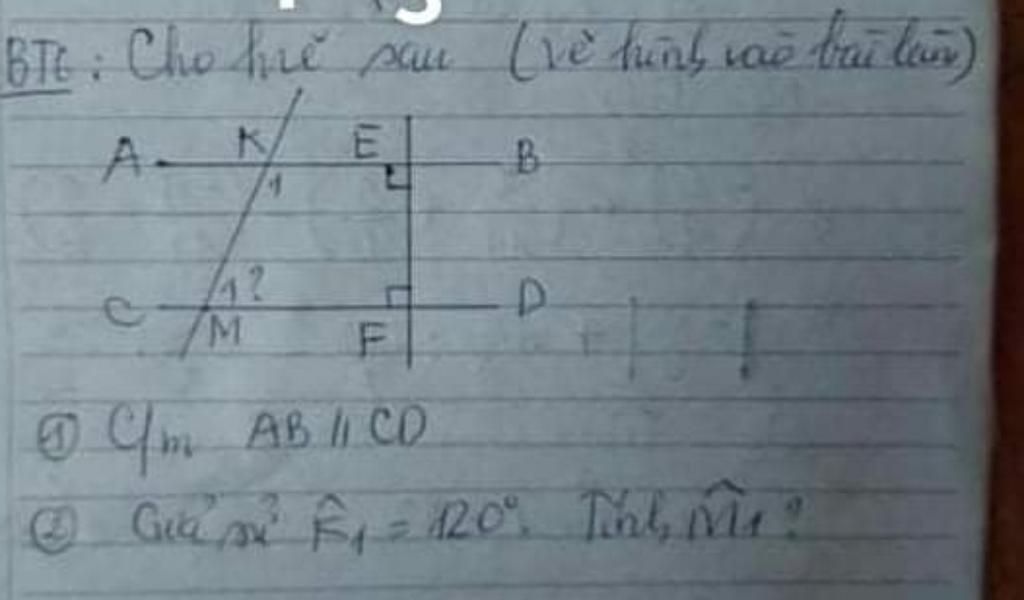 BT6: Cho hvẽ sau (vẽ hình vào bài làm)
A K E B
1
1 ?
C M F D
① C/m AB // CD
② Giả sử K̂₁ = 120°. Tính M̂₁?